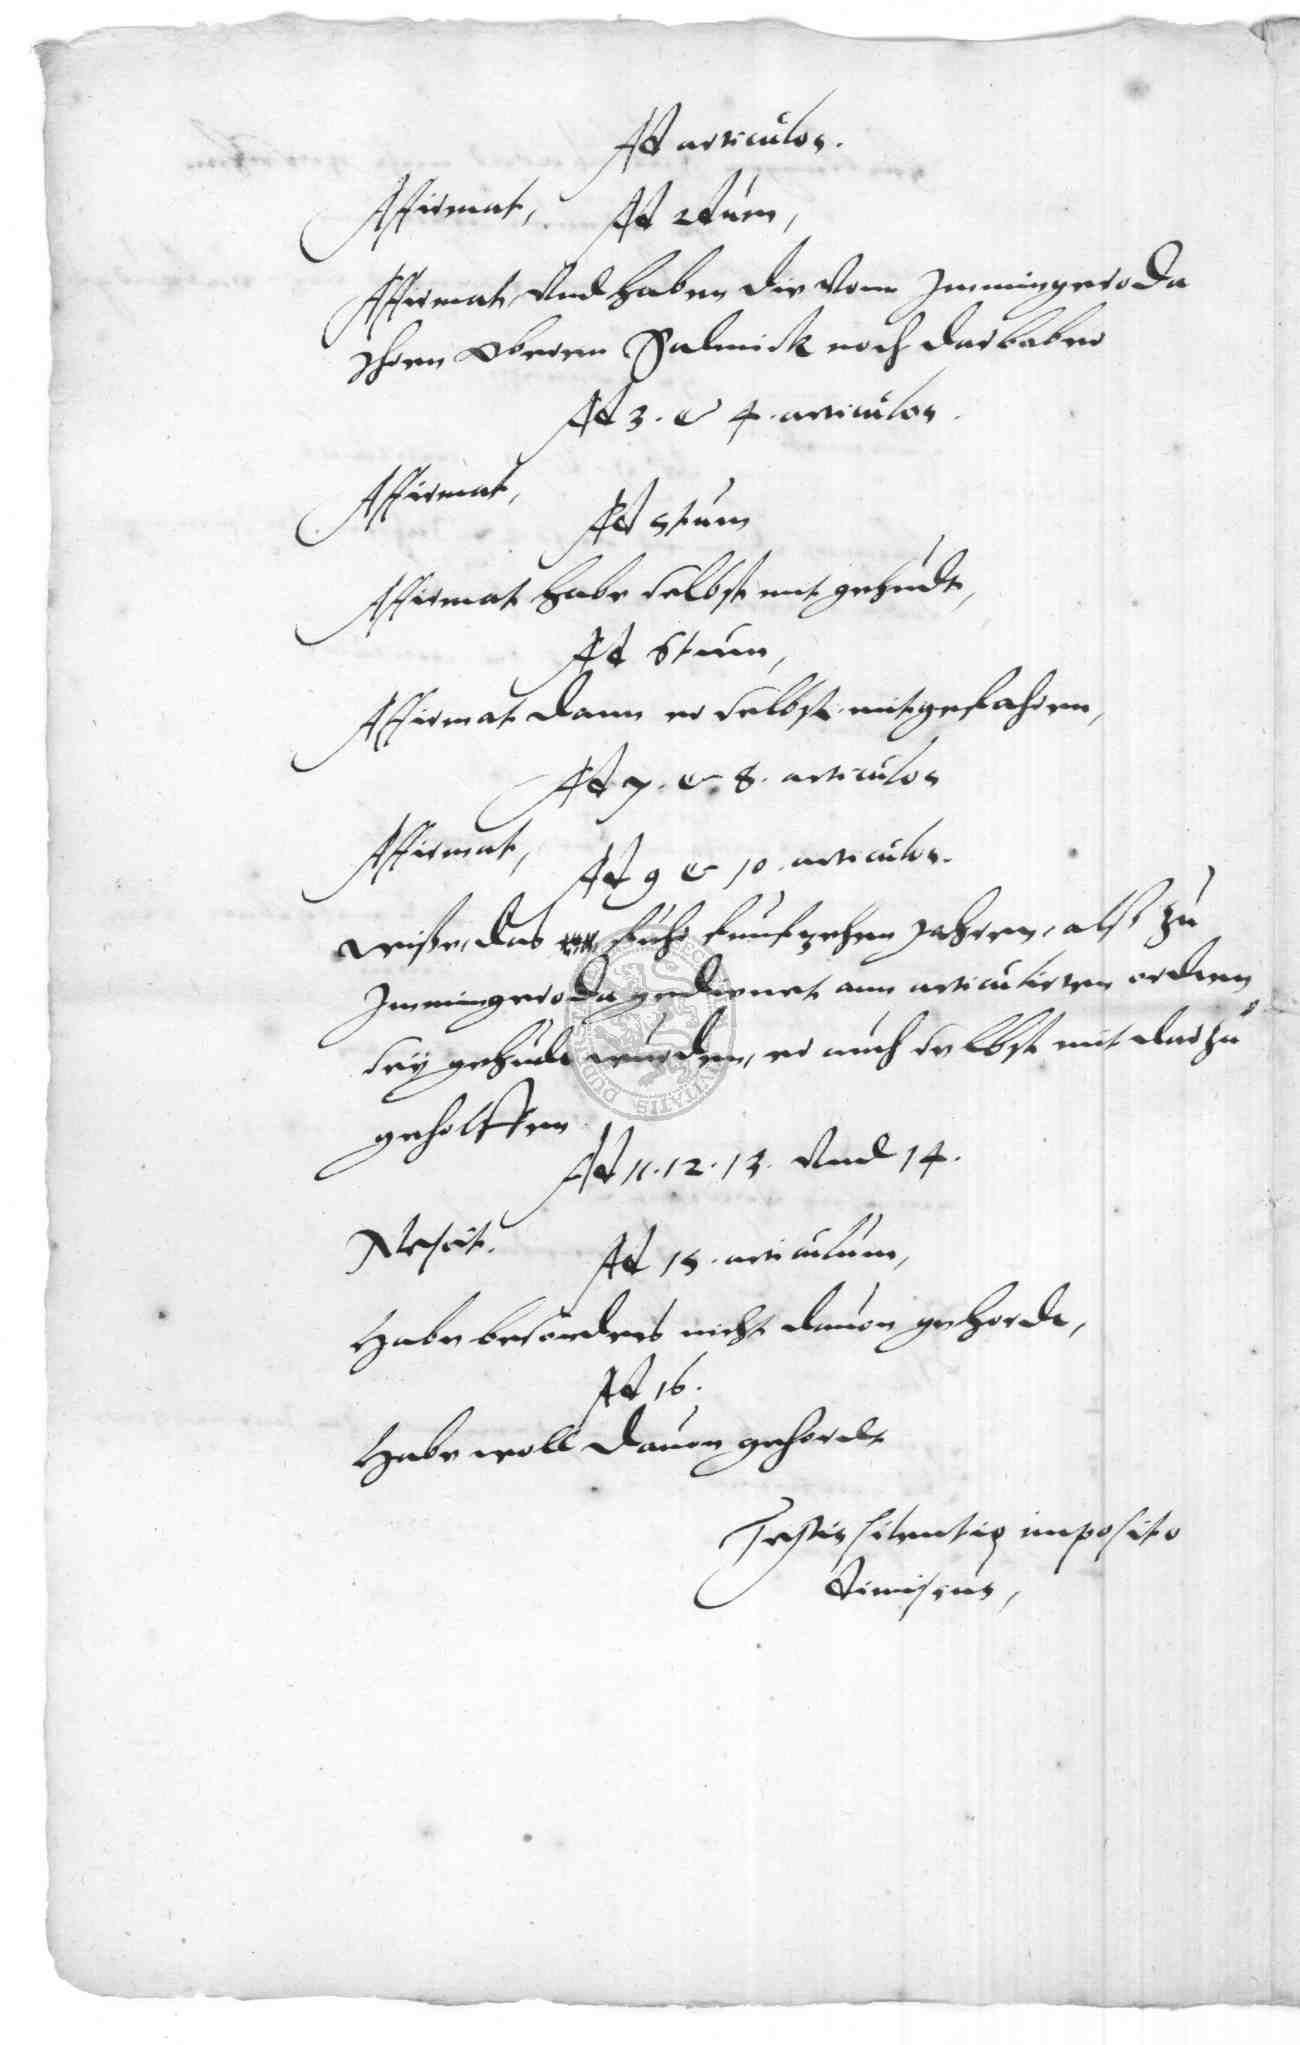 Ad articulos.
Affirmat,
Ad 2dum,
Affirmat, Vnd haben die Vonn Immingeroda
Ihren Oberen Salmick noch darbober
Ad 3. & 4. articulos.
Affirmat,
Ad 5tum
Affirmat habe selbst mit gehudt,
Ad 6tum,
Affirmat dann er selbst mitgefahren,
Ad 7. & 8. articulos
Affirmat,
Ad 9 & 10. articulos.
weiße, das fuhr funfzehen Jahren, alß zu
Immingeroda gedienet ann articulirten orden
sey gehudt wurden, er auch selbst mit darzu
geholffen
Ad 11. 12. 13. Vnd 14.
Nescit.
Ad 15. articulum,
Habe besonders nicht dauon gehordt,
Ad 16.
Habe woll dauon gehordt
Testis silentio imposito
dimissus,
SIGILLVM CIVITATIS DUDERSTADT